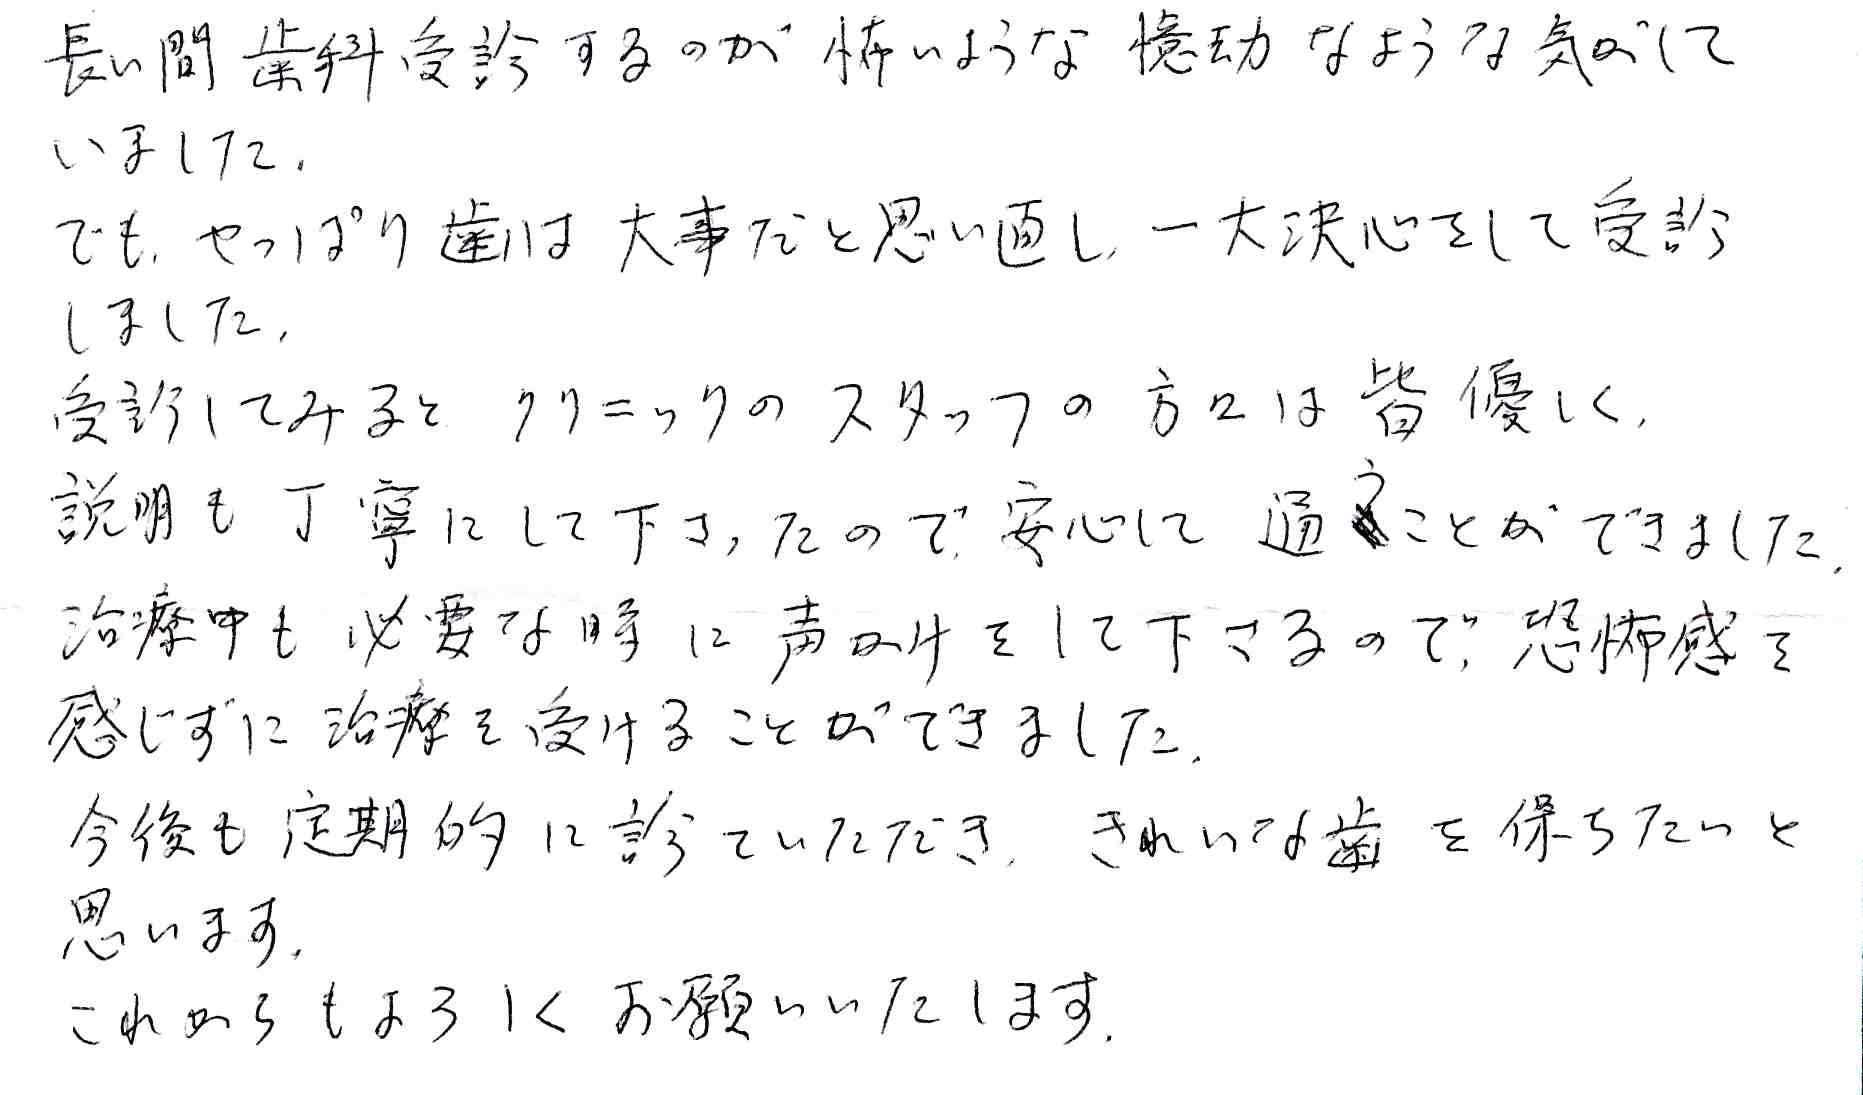 長い間 歯科受診するのが 怖いような 憶劫なような気がして
いました。
でも、やっぱり歯は大事だと思い直し、一大決心をして受診
しました。
受診してみると クリニックのスタッフの方々は皆優しく、
説明も丁寧にして下さったので、安心して 通うことができました。
治療中も必要な時に声かけをして下さるので、恐怖感を
感じずに治療を受けることができました。
今後も定期的に診ていただき、きれいな歯を保ちたいと
思います。
これからもよろしくお願いいたします。